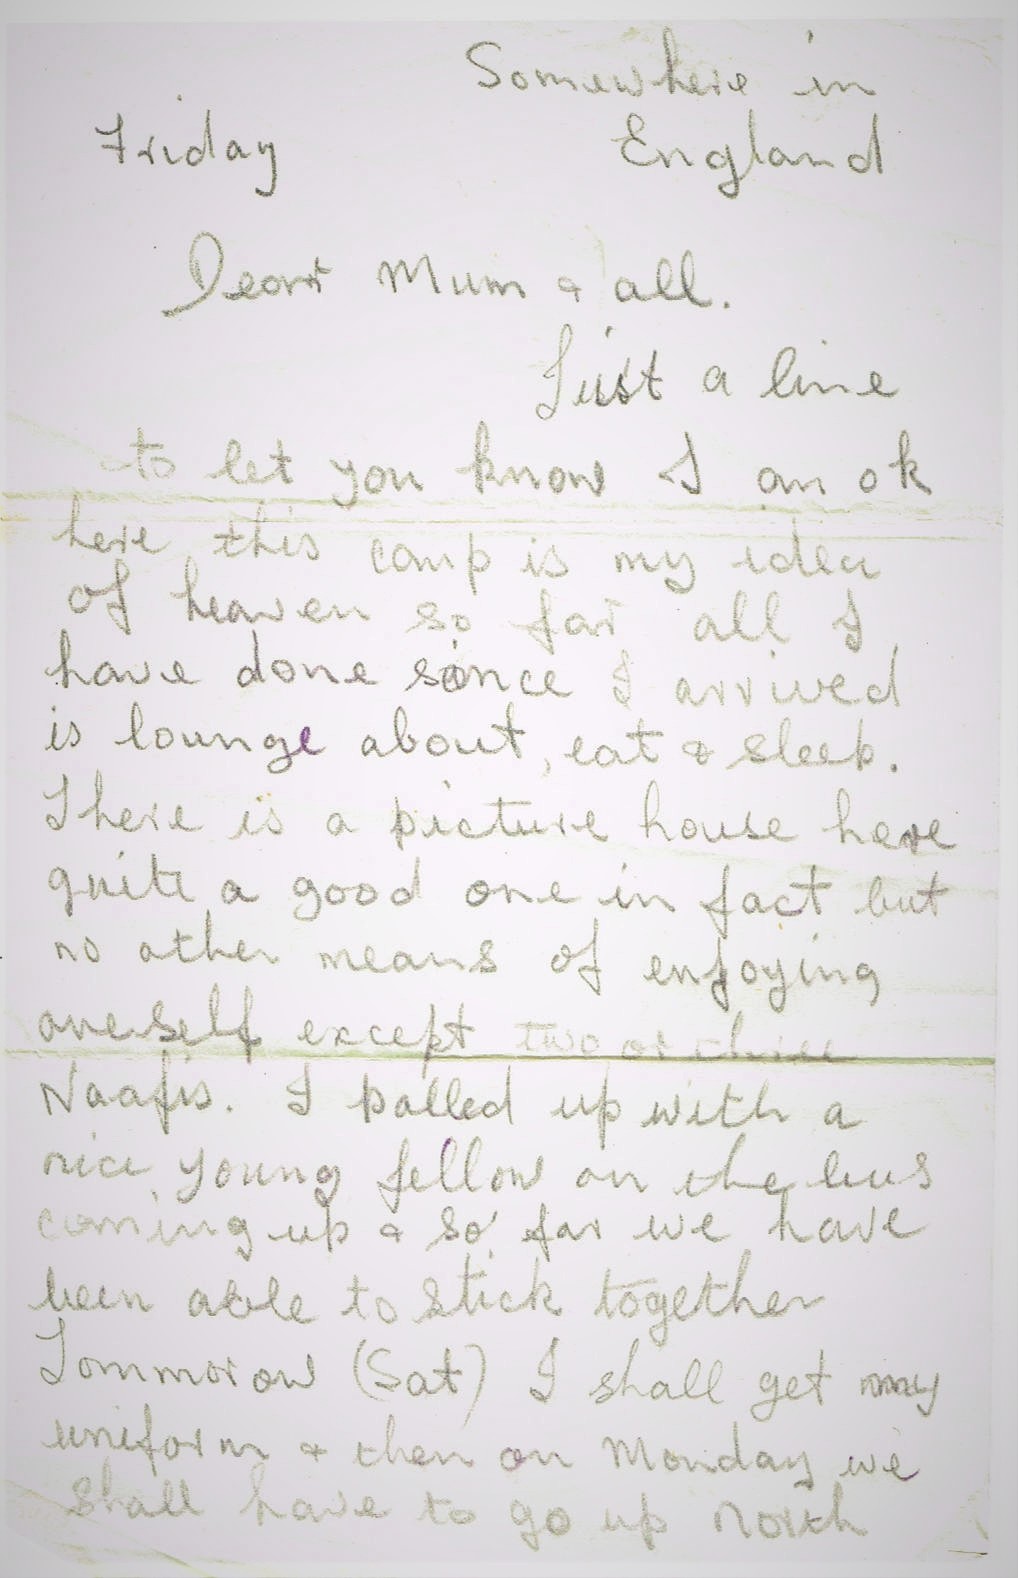 Somewhere in
Friday England
Dear Mum & all.
Just a line
to let you know I am ok
here this camp is my idea
of heaven so far all I
have done since I arrived
is lounge about, eat & sleep.
There is a picture house here
quite a good one in fact but
no other means of enjoying
oneself except two or three
Naafis. I palled up with a
nice young fellow on the bus
coming up & so far we have
been able to stick together
Tommorow (Sat) I shall get my
uniform & then on Monday we
shall have to go up north